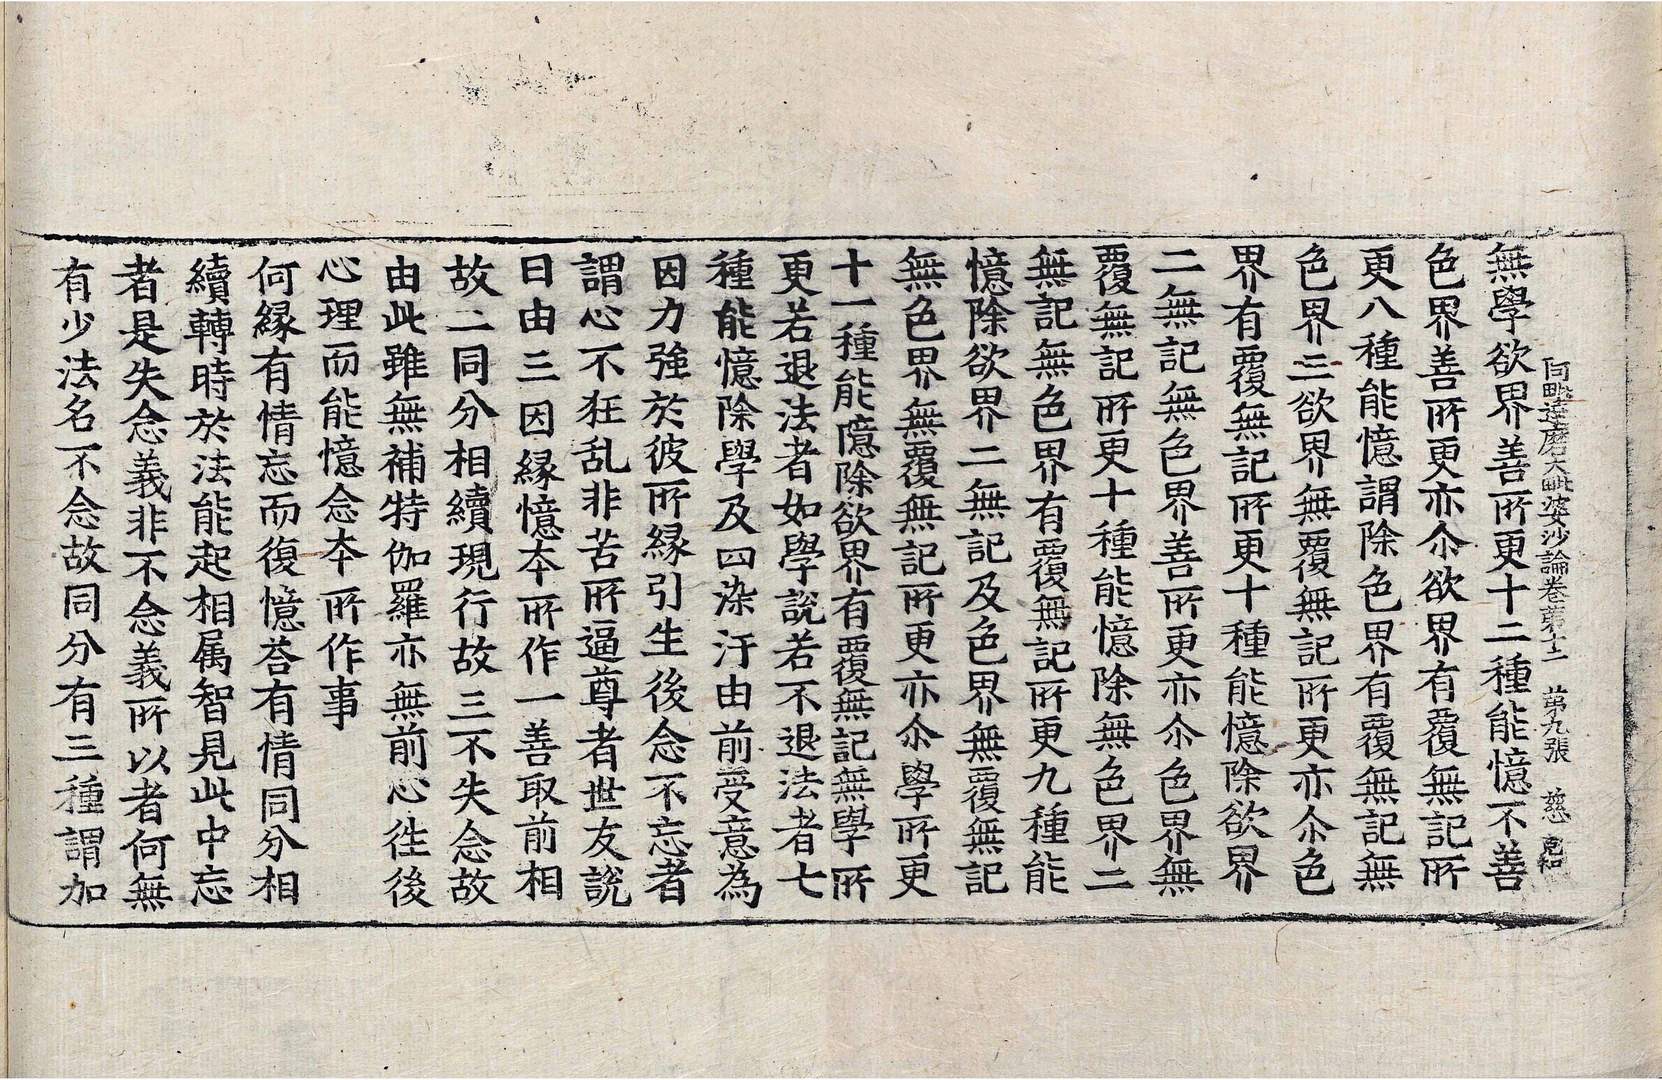 阿毗達磨大毗婆沙論卷苐十二 苐九張 慈
無學欲界善所更十二種能憶不善
色界善所更亦尒欲界有覆無記所
更八種能憶謂除色界有覆無記無
色界三欲界無覆無記所更亦尒色
界有覆無記所更十種能憶除欲界
二無記無色界善所更亦尒色界無
覆無記所更十種能憶除無色界二
無記無色界有覆無記所更九種能
憶除欲界二無記及色界無覆無記
無色界無覆無記所更亦尒學所更
十一種能憶除欲界有覆無記無學所
更若退法者如學說若不退法者七
種能憶除學及四染汙由前受意為
因力強於彼所緣引生後念不忘者
謂心不狂乱非苦所逼尊者世友說
曰由三因緣憶夲所作一善取前相
故二同分相續現行故三不失念故
由此雖無補特伽羅亦無前心徃後
心理而能憶念夲所作事
何緣有情忘而復憶荅有情同分相
續轉時於法能起相属智見此中忘
者是失念義非不念義所以者何無
有少法名不念故同分有三種謂加